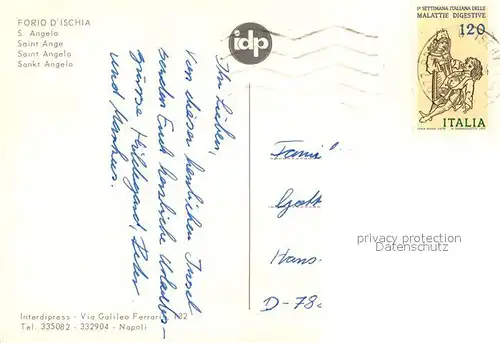 FORIO D'ISCHIA
S. Angelo
Saint Ange
Saint Angelo
Sankt Angelo
idp
Iª SETTIMANA ITALIANA DELLE
MALATTIE DIGESTIVE
120
ITALIA
Ihr Lieben,
Von dieser herrlichen Insel
senden Euch herzliche Urlaubs-
grüsse Hildegard, Peter
und Markus.
Famil
Gott
Hans.
D-78
privacy protection
Datenschutz
Interdipress - Via Galileo Ferraris, 132
Tel. 335082 - 332904 - Napoli